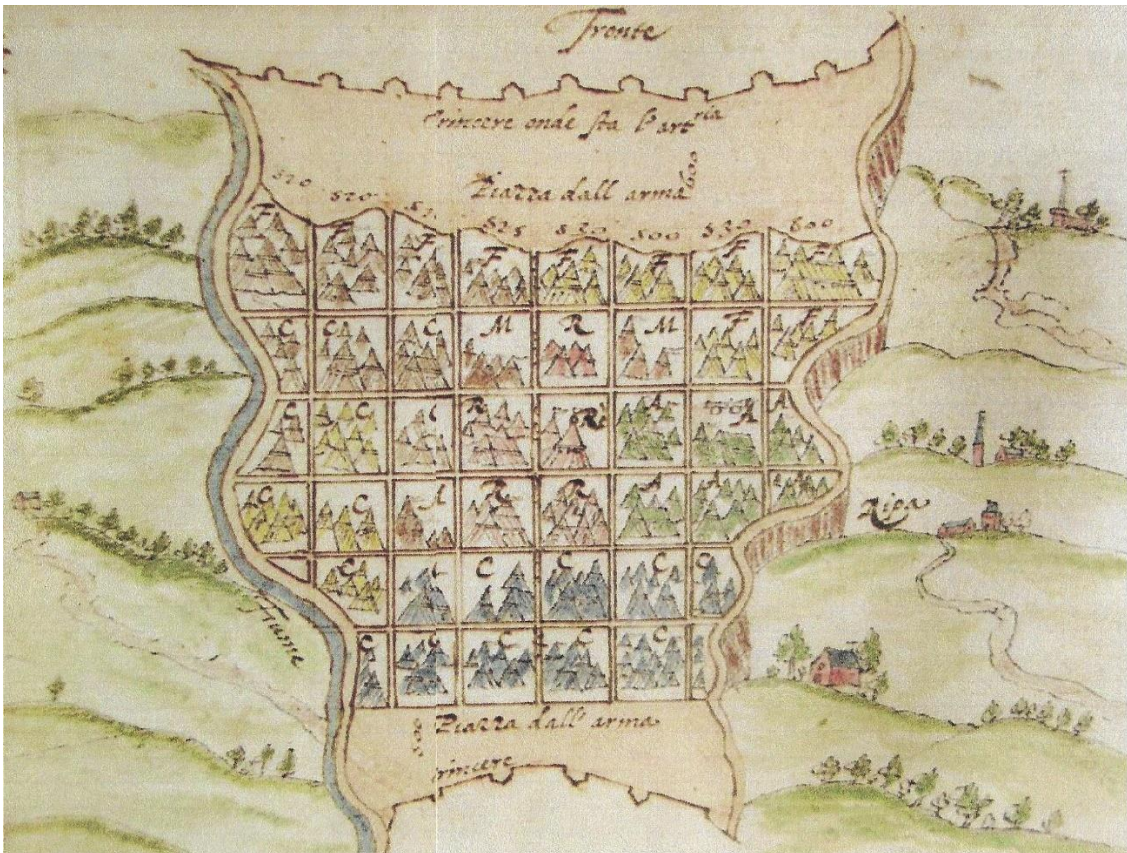 Fronte
Trincere onde sta l'art.ria
Piazza dall'arma
600
520 520 525 530 500 530 600
F F F F F F F F
C C C M R M F F
C C C R R A A A
C C I R R A A A
C C C C C C
C C C C C
Ripa
Fiume
Piazza dall'arma
Trincere